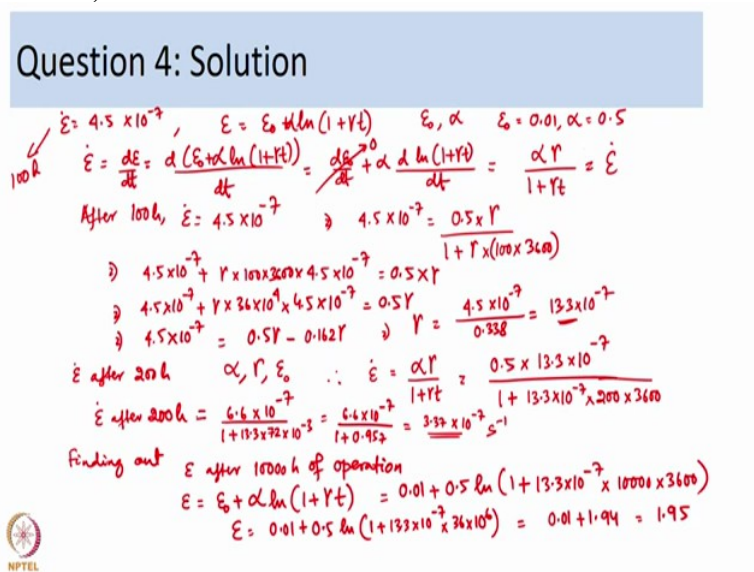 Question 4: Solution
ε̇ = 4.5 × 10⁻⁷, ε = ε₀ + α ln (1 + rt) ε₀, α ε₀ = 0.01, α = 0.5
100h
ε̇ = dε/dt = d (ε₀ + α ln (1+rt))/dt = dε₀/dt → 0 + α d ln (1+rt)/dt = αr/(1+rt) = ε̇
After 100h, ε̇ = 4.5 × 10⁻⁷ ⇒ 4.5 × 10⁻⁷ = 0.5 × r/(1 + r × (100 × 3600))
⇒ 4.5 × 10⁻⁷ + r × 100 × 3600 × 4.5 × 10⁻⁷ = 0.5 × r
⇒ 4.5 × 10⁻⁷ + r × 36 × 10⁴ × 4.5 × 10⁻⁷ = 0.5r
⇒ 4.5 × 10⁻⁷ = 0.5r - 0.162r ⇒ r = 4.5 × 10⁻⁷/0.338 = 13.3 × 10⁻⁷
ε̇ after 200h α, r, ε₀ ∴ ε̇ = αr/(1+rt) = 0.5 × 13.3 × 10⁻⁷/(1 + 13.3 × 10⁻⁷ × 200 × 3600)
ε̇ after 200h = 6.6 × 10⁻⁷/(1 + 13.3 × 72 × 10⁻³) = 6.6 × 10⁻⁷/(1 + 0.957) = 3.37 × 10⁻⁷ s⁻¹
Finding out ε after 10000 h of operation
ε = ε₀ + α ln (1 + rt) = 0.01 + 0.5 ln (1 + 13.3 × 10⁻⁷ × 10000 × 3600)
ε = 0.01 + 0.5 ln (1 + 13.3 × 10⁻⁷ × 36 × 10⁶) = 0.01 + 1.94 = 1.95
NPTEL